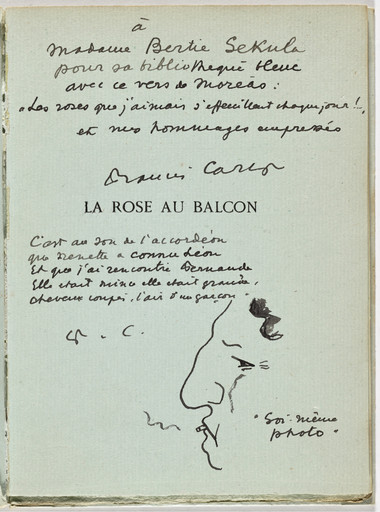 à
Madame Bertie Sekula
pour sa bibliothèque bleue
avec ce vers de Moréas :
"Les roses que j'aimais s'effeuillent chaque jour !"
et mes hommages empressés
Francis Carco
LA ROSE AU BALCON
C'est au son de l'accordéon
que Nenette a connu Léon
Et que j'ai rencontré Bernande
Elle était mince elle était grande,
cheveux coupés, l'air d'un garçon.
F. C.
"Soi-même
photo"